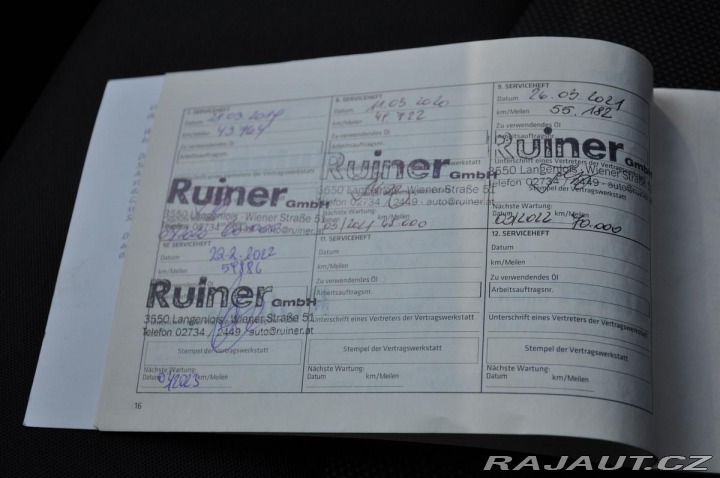 7. SERVICEHEFT
Datum 21.03.2019
km/Meilen 43.764
Zu verwendendes Öl
Arbeitsauftragsnr.
Ruiner GmbH
3550 Langenlois, Wiener Straße 51
Telefon 02734 / 2449 - auto@ruiner.at
8. SERVICEHEFT
Datum 11.03.2020
km/Meilen 49.722
Zu verwendendes Öl
Arbeitsauftragsnr.
Ruiner GmbH
3550 Langenlois - Wiener Straße 51
Telefon 02734 / 2449 - auto@ruiner.at
Nächste Wartung:
03/2021
9. SERVICEHEFT
Datum 26.03.2021
km/Meilen 55.182
Zu verwendendes Öl
Arbeitsauftragsnr.
Ruiner GmbH
Unterschrift eines Vertreters der Vertragswerkstatt
3550 Langenlois, Wiener Straße 51
Telefon 02734 / 2449 - auto@ruiner.at
Nächste Wartung:
03/2022 70.000
10. SERVICEHEFT
Datum 22.2.2022
km/Meilen
Zu verwendendes Öl
Arbeitsauftragsnr.
Ruiner GmbH
3550 Langenlois, Wiener Straße 51
Telefon 02734 / 2449 - auto@ruiner.at
Stempel der Vertragswerkstatt
Nächste Wartung:
Datum km/Meilen
11. SERVICEHEFT
Datum
km/Meilen
Zu verwendendes Öl
Arbeitsauftragsnr.
Unterschrift eines Vertreters der Vertragswerkstatt
Stempel der Vertragswerkstatt
Nächste Wartung:
Datum km/Meilen
12. SERVICEHEFT
Datum
km/Meilen
Zu verwendendes Öl
Arbeitsauftragsnr.
Unterschrift eines Vertreters der Vertragswerkstatt
Stempel der Vertragswerkstatt
Nächste Wartung:
Datum km/Meilen
16
RAJAUT.CZ